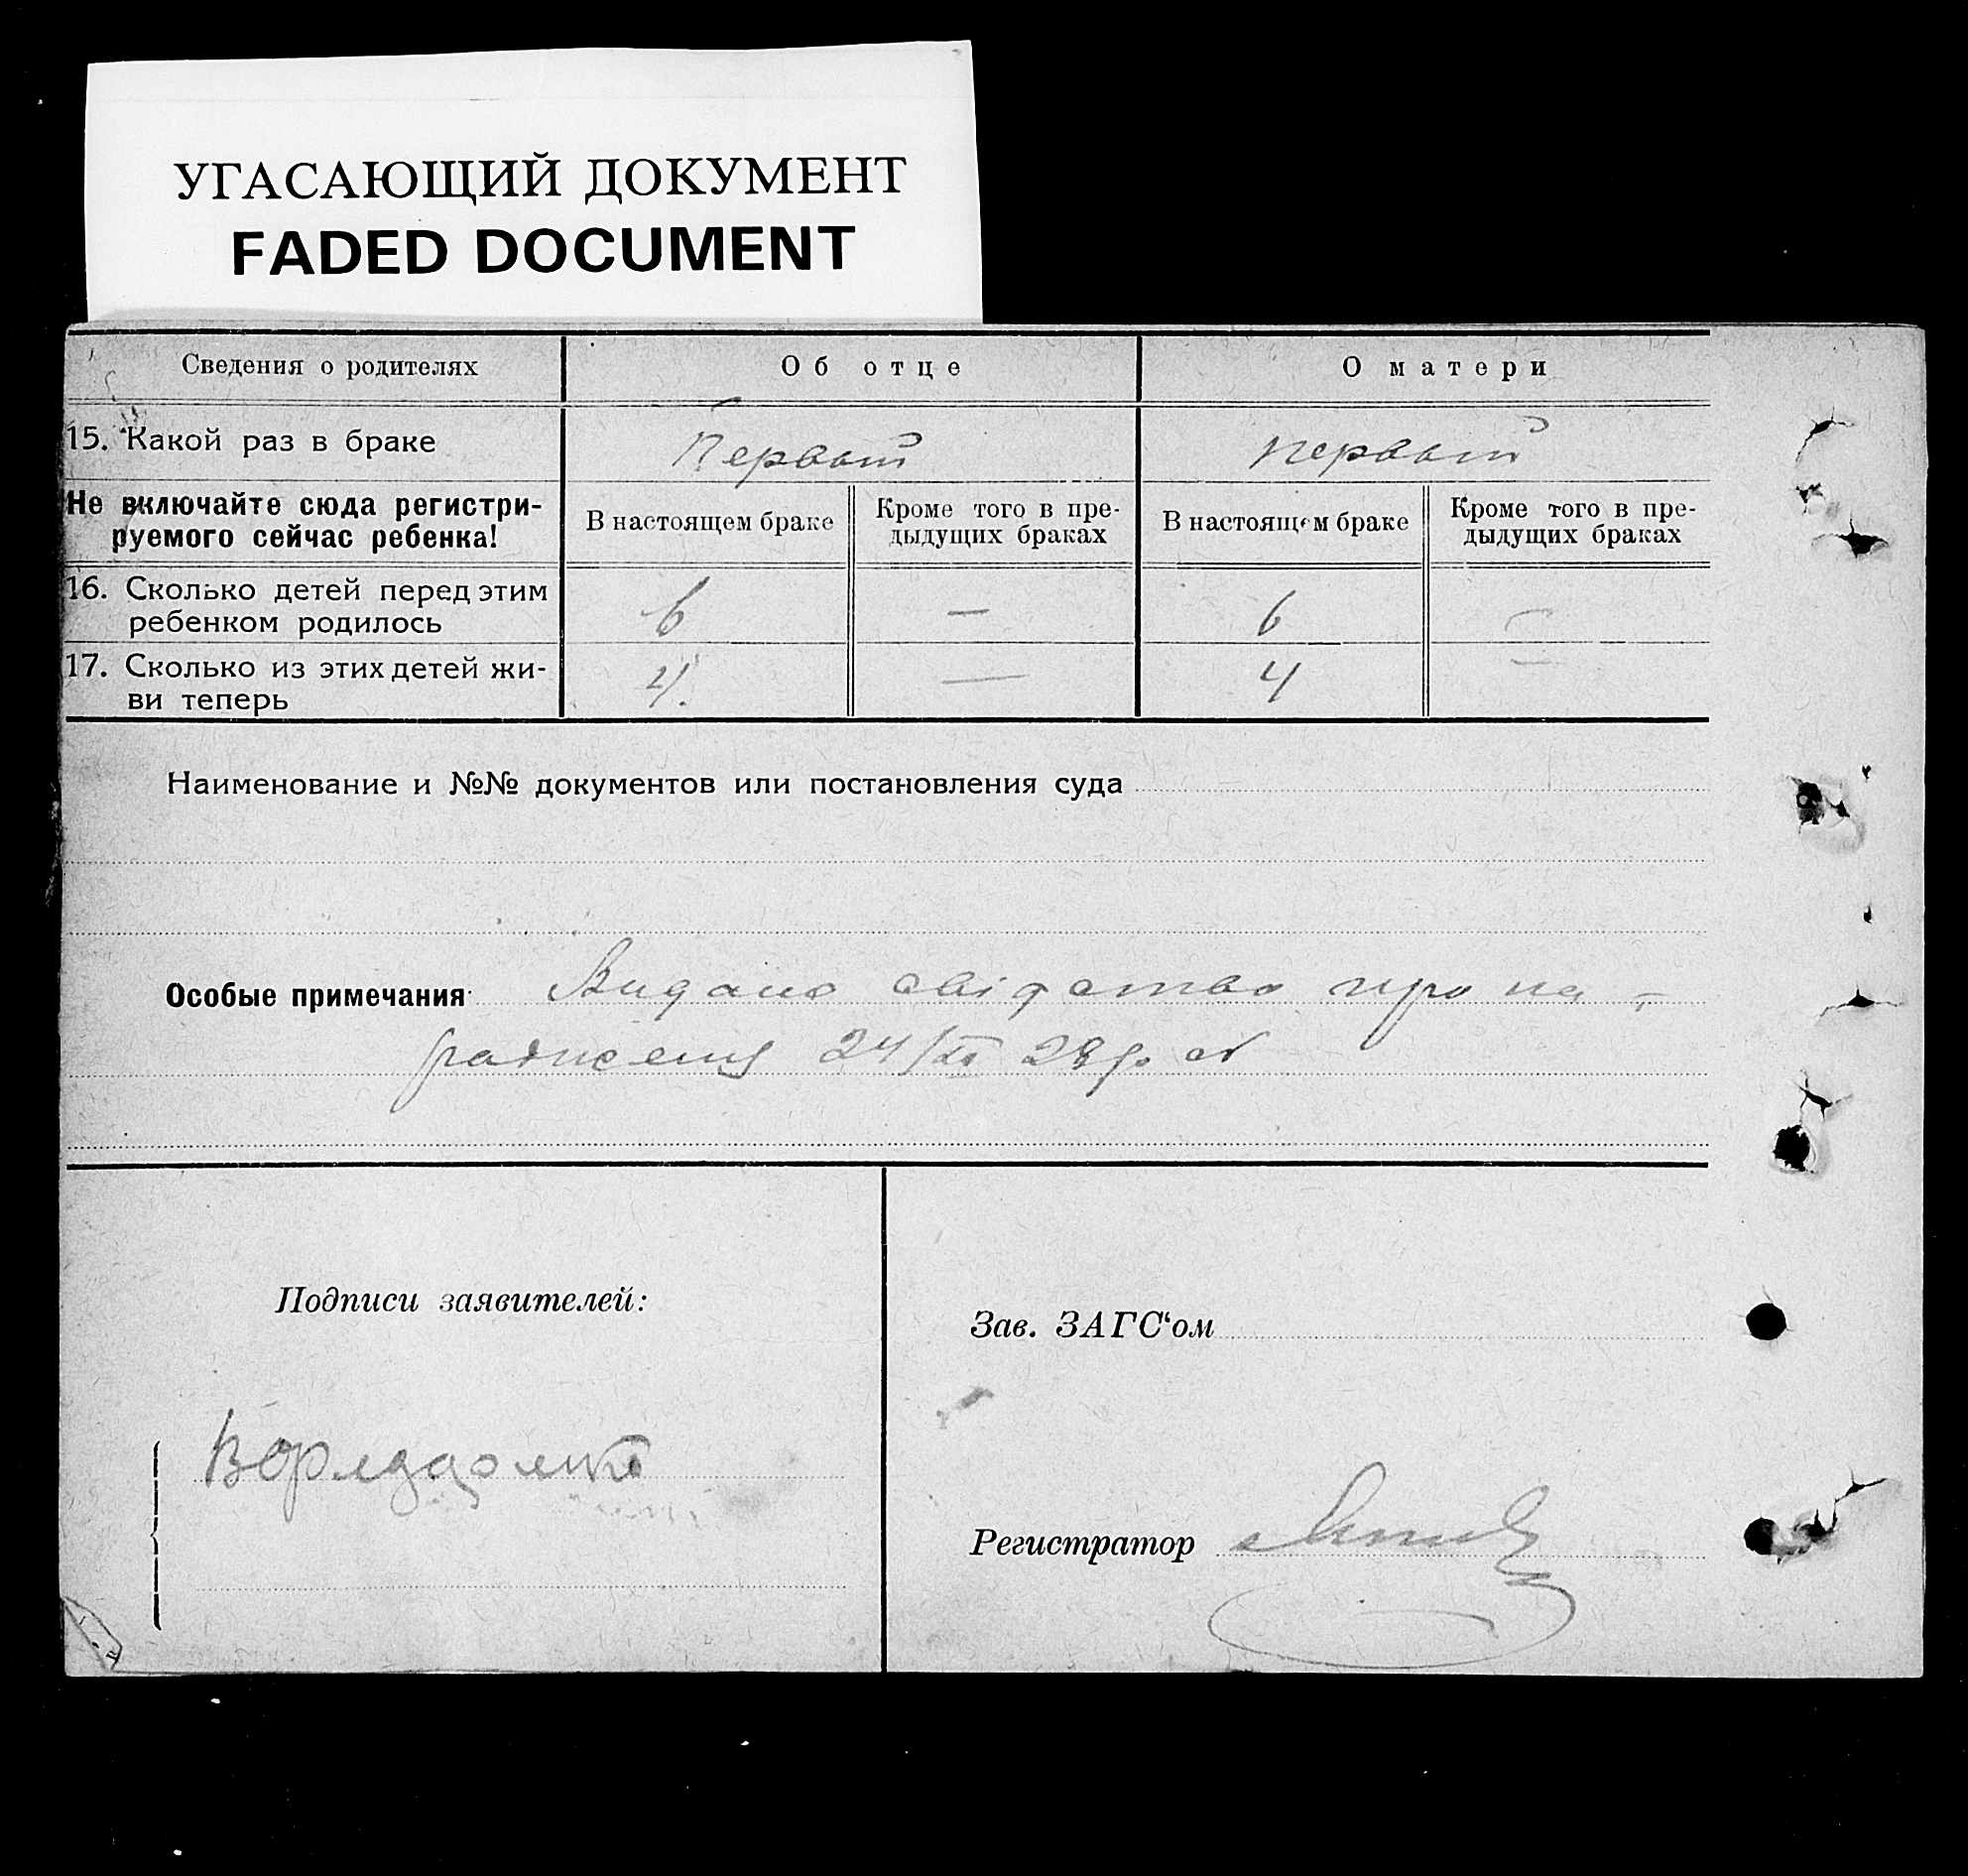 УГАСАЮЩИЙ ДОКУМЕНТ
FADED DOCUMENT
Сведения о родителях Об отце О матери
15. Какой раз в браке Первый первый
Не включайте сюда регистри-
руемого сейчас ребенка!
В настоящем браке Кроме того в пре-
дыдущих браках В настоящем браке Кроме того в пре-
дыдущих браках
16. Сколько детей перед этим
ребенком родилось 6 — 6 —
17. Сколько из этих детей жи-
ви теперь 4. — 4 —
Наименование и №№ документов или постановления суда
Особые примечания Видано свідоство про на-
родження 24/ 28р
Подписи заявителей:
Зав. ЗАГС‘ом
Регистратор